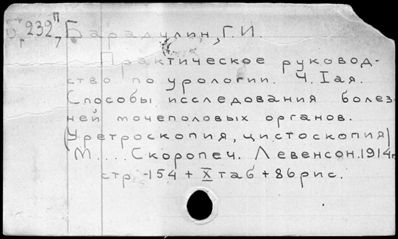 232 П/7 Барадулин, Г. И.
Практическое руковод-
ство по урологии. Ч. Iая.
Способы исследования болез-
ней мочеполовых органов.
(Уретроскопия, цистоскопия)
М.... Скоропеч. Левенсон. 1914г.
стр. -154 + X таб + 86 рис.